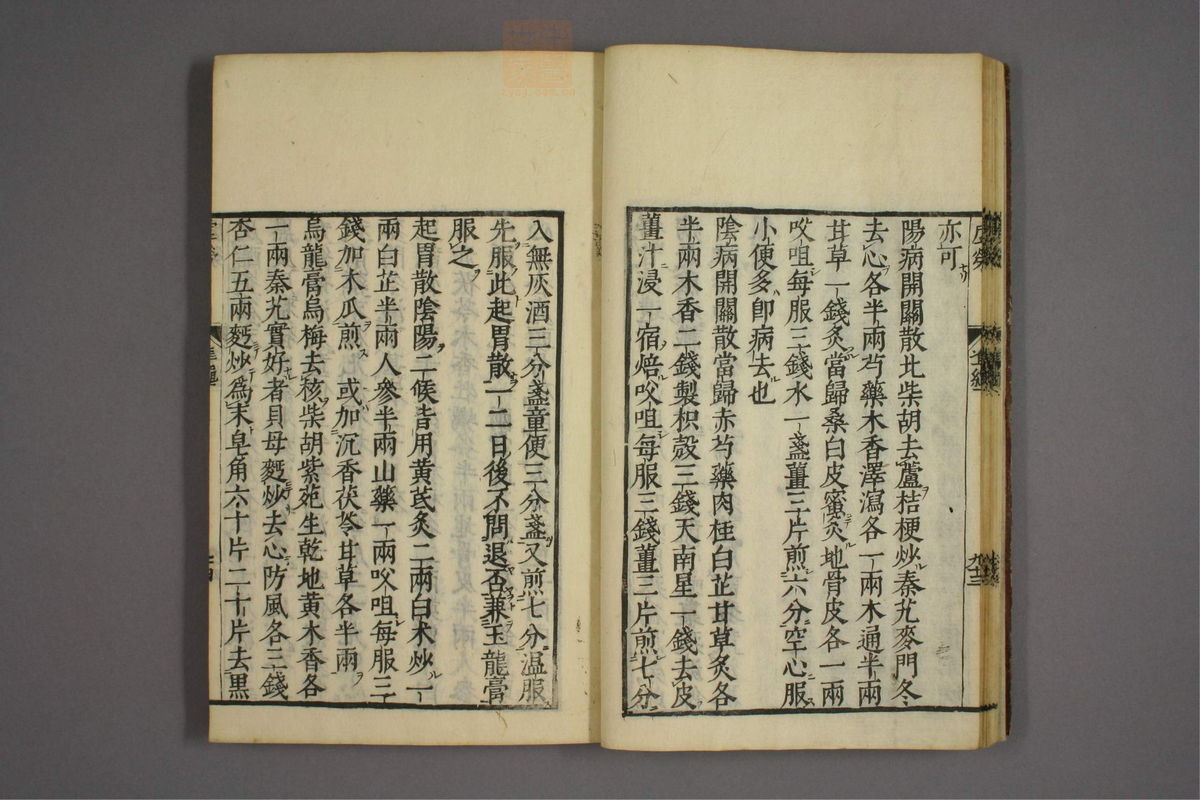 亦可
陽病開關散北柴胡去蘆桔梗炒秦艽麥門冬
去心各半兩芍藥木香澤瀉各一兩木通半兩
甘草一錢炙當歸桑白皮蜜炙地骨皮各一兩
㕮咀每服三錢水一盞薑三片煎六分空心服
小便多卽病去也
陰病開關散當歸赤芍藥肉桂白芷甘草炙各
半兩木香二錢製枳殼三錢天南星一錢去皮
薑汁浸一宿焙㕮咀每服三錢薑三片煎七分
入無灰酒三分盞童便三分盞又煎七分温服
先服此起胃散一二日後不問退否兼玉龍膏
服之
起胃散陰陽二候皆用黄芪炙二兩白朮炒一
兩白芷半兩人參半兩山藥一兩㕮咀每服三
錢加木瓜煎 或加沉香茯苓甘草各半兩
烏龍膏烏梅去核柴胡紫菀生乾地黄木香各
一兩秦艽實好者貝母麪炒去心防風各三錢
杏仁五兩麪炒爲末皂角六十片二十片去黒